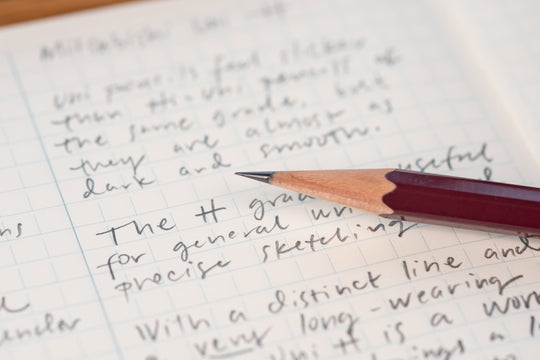 Mitsubishi Uni - H
Uni pencils feel slicker
than Hi-uni pencils of
the same grade, but
they are almost as
dark and smooth.
The H gra useful
for general wri
precise sketching
With a distinct line and
a very long-wearing
Uni H is a wor
ings a l
ns
under